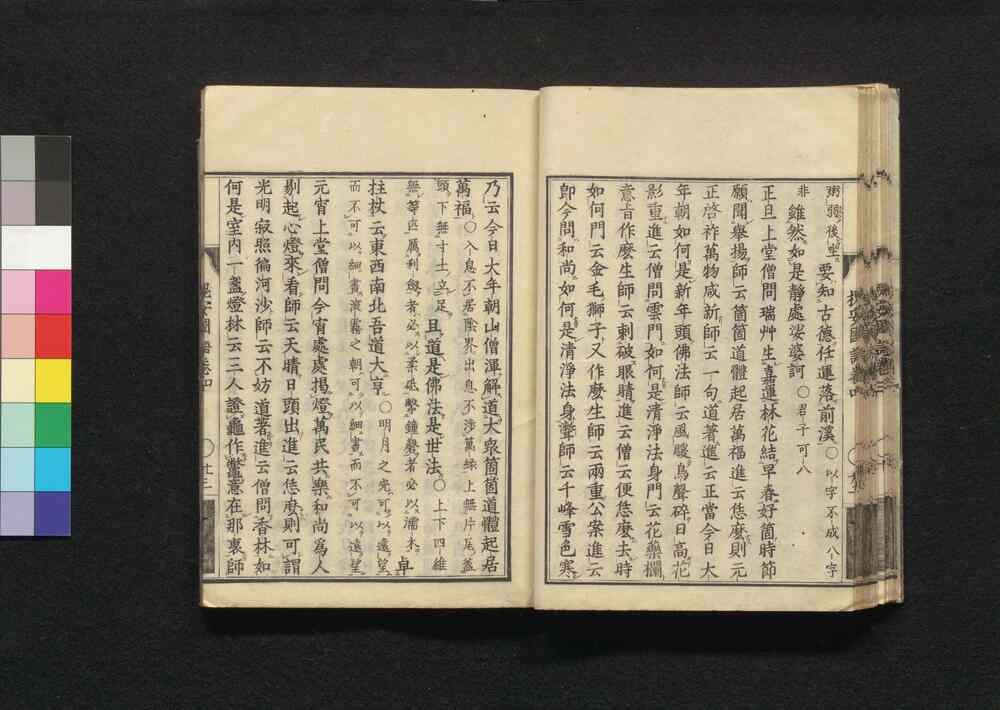 弼弱後堅要知古德任運落前溪〇以字不成八字
非雖然如是靜處娑婆訶〇君子可八
正旦上堂僧問瑞艸生嘉運林花結早春好箇時節
願聞舉揚師云箇箇道體起居萬福進云恁麼則元
正啓祚萬物咸新師云一句道著進云正當今日大
年朝如何是新年頭佛法師云風暖鳥聲碎日高花
影重進云僧問雲門如何是清淨法身門云花藥欄
意旨作麼生師云刺破眼睛進云僧云便恁麼去時
如何門云金毛獅子又作麼生師云兩重公案進云
卽今問和尚如何是清淨法身聻師云千峰雪色寒
乃云今日大年朝山僧渾解道大衆箇箇道體起居
萬福〇入息不居陰界出息不涉萬緣上無片瓦蓋
頭下無寸土立足且道是佛法是世法〇上下四維
無等匹厲利劍者必以柔砥擊鐘磬者必以濡木卓
拄杖云東西南北吾道大亨〇明月之光可以遠望
而不可以細書濃霧之朝可以細書而不可以遠望
元宵上堂僧問今宵處處揭燈萬民共樂和尚爲人
剔起心燈來看師云天晴日頭出進云恁麼則可謂
光明寂照徧河沙師云不妨道著進云僧問香林如
何是室内一盞燈林云三人證龜作鼈意在那裏師